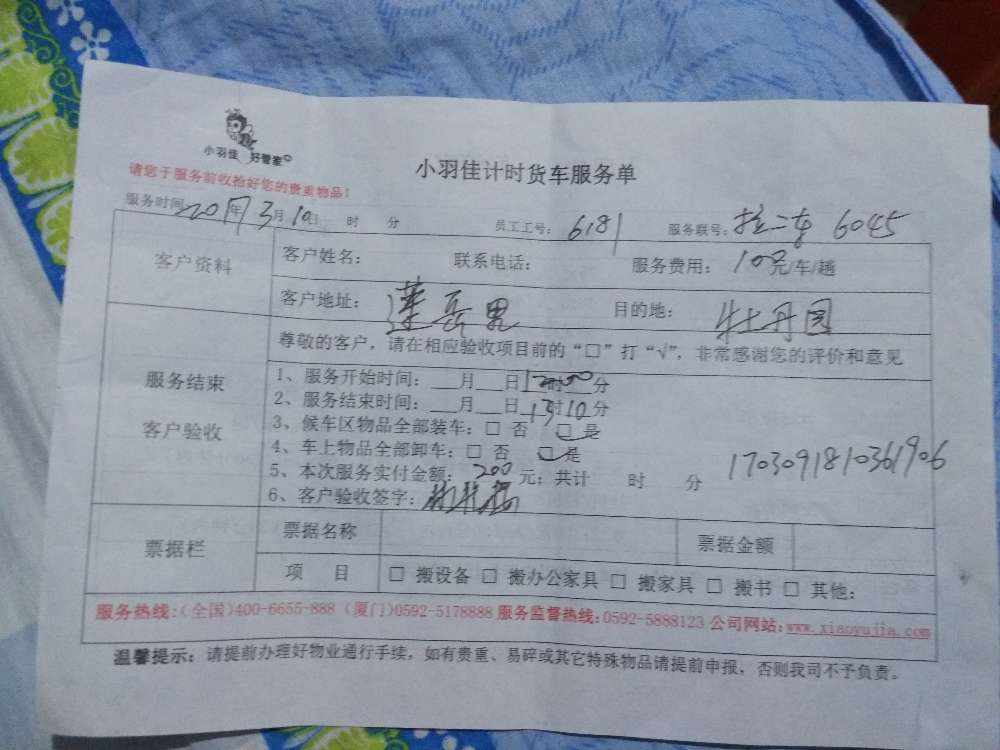 小羽佳 好管家
小羽佳计时货车服务单
请您于服务前收拾好您的贵重物品!
服务时间: 2017年3月10日 时 分 员工工号: 6181 服务联号: 6045
客户资料
客户姓名: 联系电话: 服务费用: 10元/车/趟
客户地址: 莲岳里 目的地: 牡丹园
服务结束
客户验收
尊敬的客户,请在相应验收项目前的“□”打“√”,非常感谢您的评价和意见
1、服务开始时间:___月___日12时00分
2、服务结束时间:___月___日13时10分
3、候车区物品全部装车:□ 否 □ 是
4、车上物品全部卸车:□ 否 □ 是
5、本次服务实付金额: 200 元;共计 时 分
1703091810361906
6、客户验收签字:
票据栏
票据名称 票据金额
项 目 □ 搬设备 □ 搬办公家具 □ 搬家具 □ 搬书 □ 其他:
服务热线:(全国)400-6655-888 (厦门)0592-5178888 服务监督热线:0592-5888123 公司网站:www.xiaoyujia.com
温馨提示:请提前办理好物业通行手续,如有贵重、易碎或其它特殊物品请提前申报,否则我司不予负责。